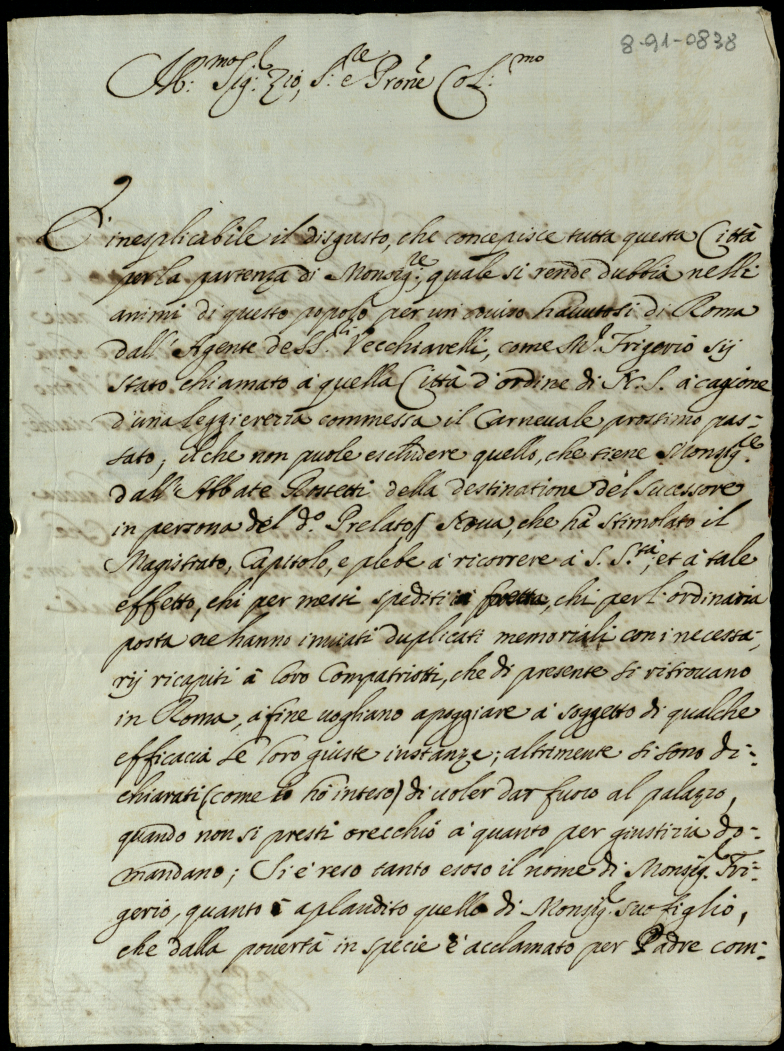 8-91-0838
Ill:mo Sig:r Zio, S:re e Prone Col:mo
È inesplicabile il disgusto, che concepisce tutta questa Città
per la partenza di Monsig:re, quale si rende dubbia nelli
animi di questo popolo per un aviso havutosi di Roma
dall' Agente de SS:ri Vecchiavelli, come M.r Frigerio sij
stato chiamato à quella Città d'ordine di N. S. à cagione
d'una leggierezza commessa il Carnevale prossimo pas=
sato; il che non puole escludere quello, che tiene Monsig:re
dall' Abbate Rosetti della destinatione del Successore
in persona del d.o Prelato, che hà stimolato il
Magistrato, Capitolo, e plebe à ricorrere à S. S.tà, et à tale
effetto, chi per messi spediti, chi per l'ordinaria
posta ne hanno inviati duplicati memoriali con i necessa=
rij ricapiti à loro Compatriotti, che di presente si ritrovano
in Roma, à fine vogliano apoggiare à soggetto di qualche
efficacia le loro giuste instanze; altrimente si sono di=
chiarati (come io hò inteso) di voler dar fuoco al palazzo,
quando non si presti orecchio à quanto per giustizia do=
mandano; Si è reso tanto esoso il nome di Monsig.r Fri=
gerio, quanto è aplaudito quello di Monsig.r suo figlio,
che dalla povertà in specie è acclamato per Padre com=